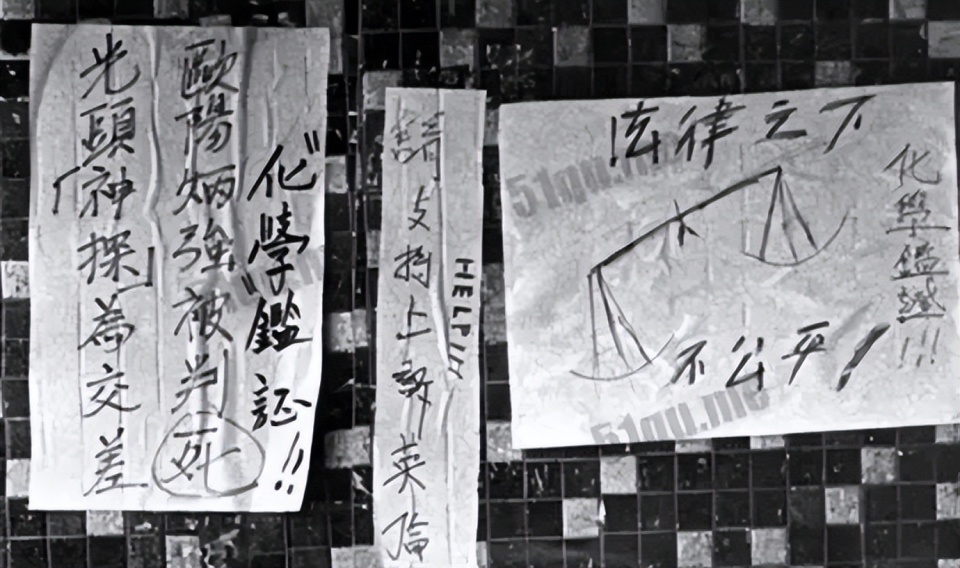 "化學"鑑証!!
歐陽炳強被判死
光頭「神探」為交差
HELP!!
請支持上訴英倫
法律之下
不公平!
化學鑑!!!
51qu.me
51qu.me